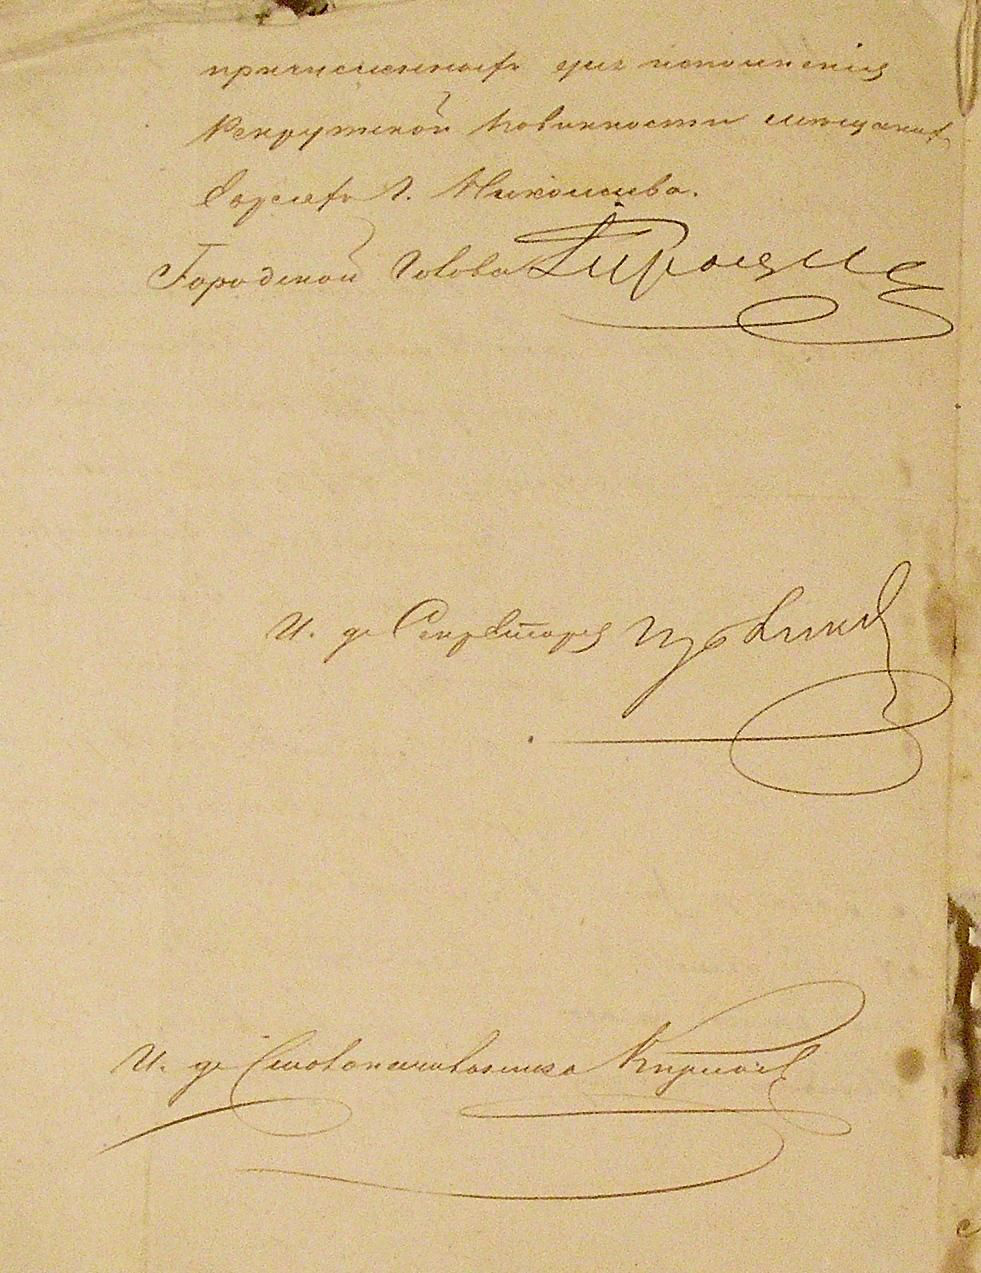 причисленныхъ для исполненія
Рекрутской повинности мѣщанъ
Евреевъ г. Николаева.
Городской Голова
И. д. Секретаря
И. д. Столоначальника